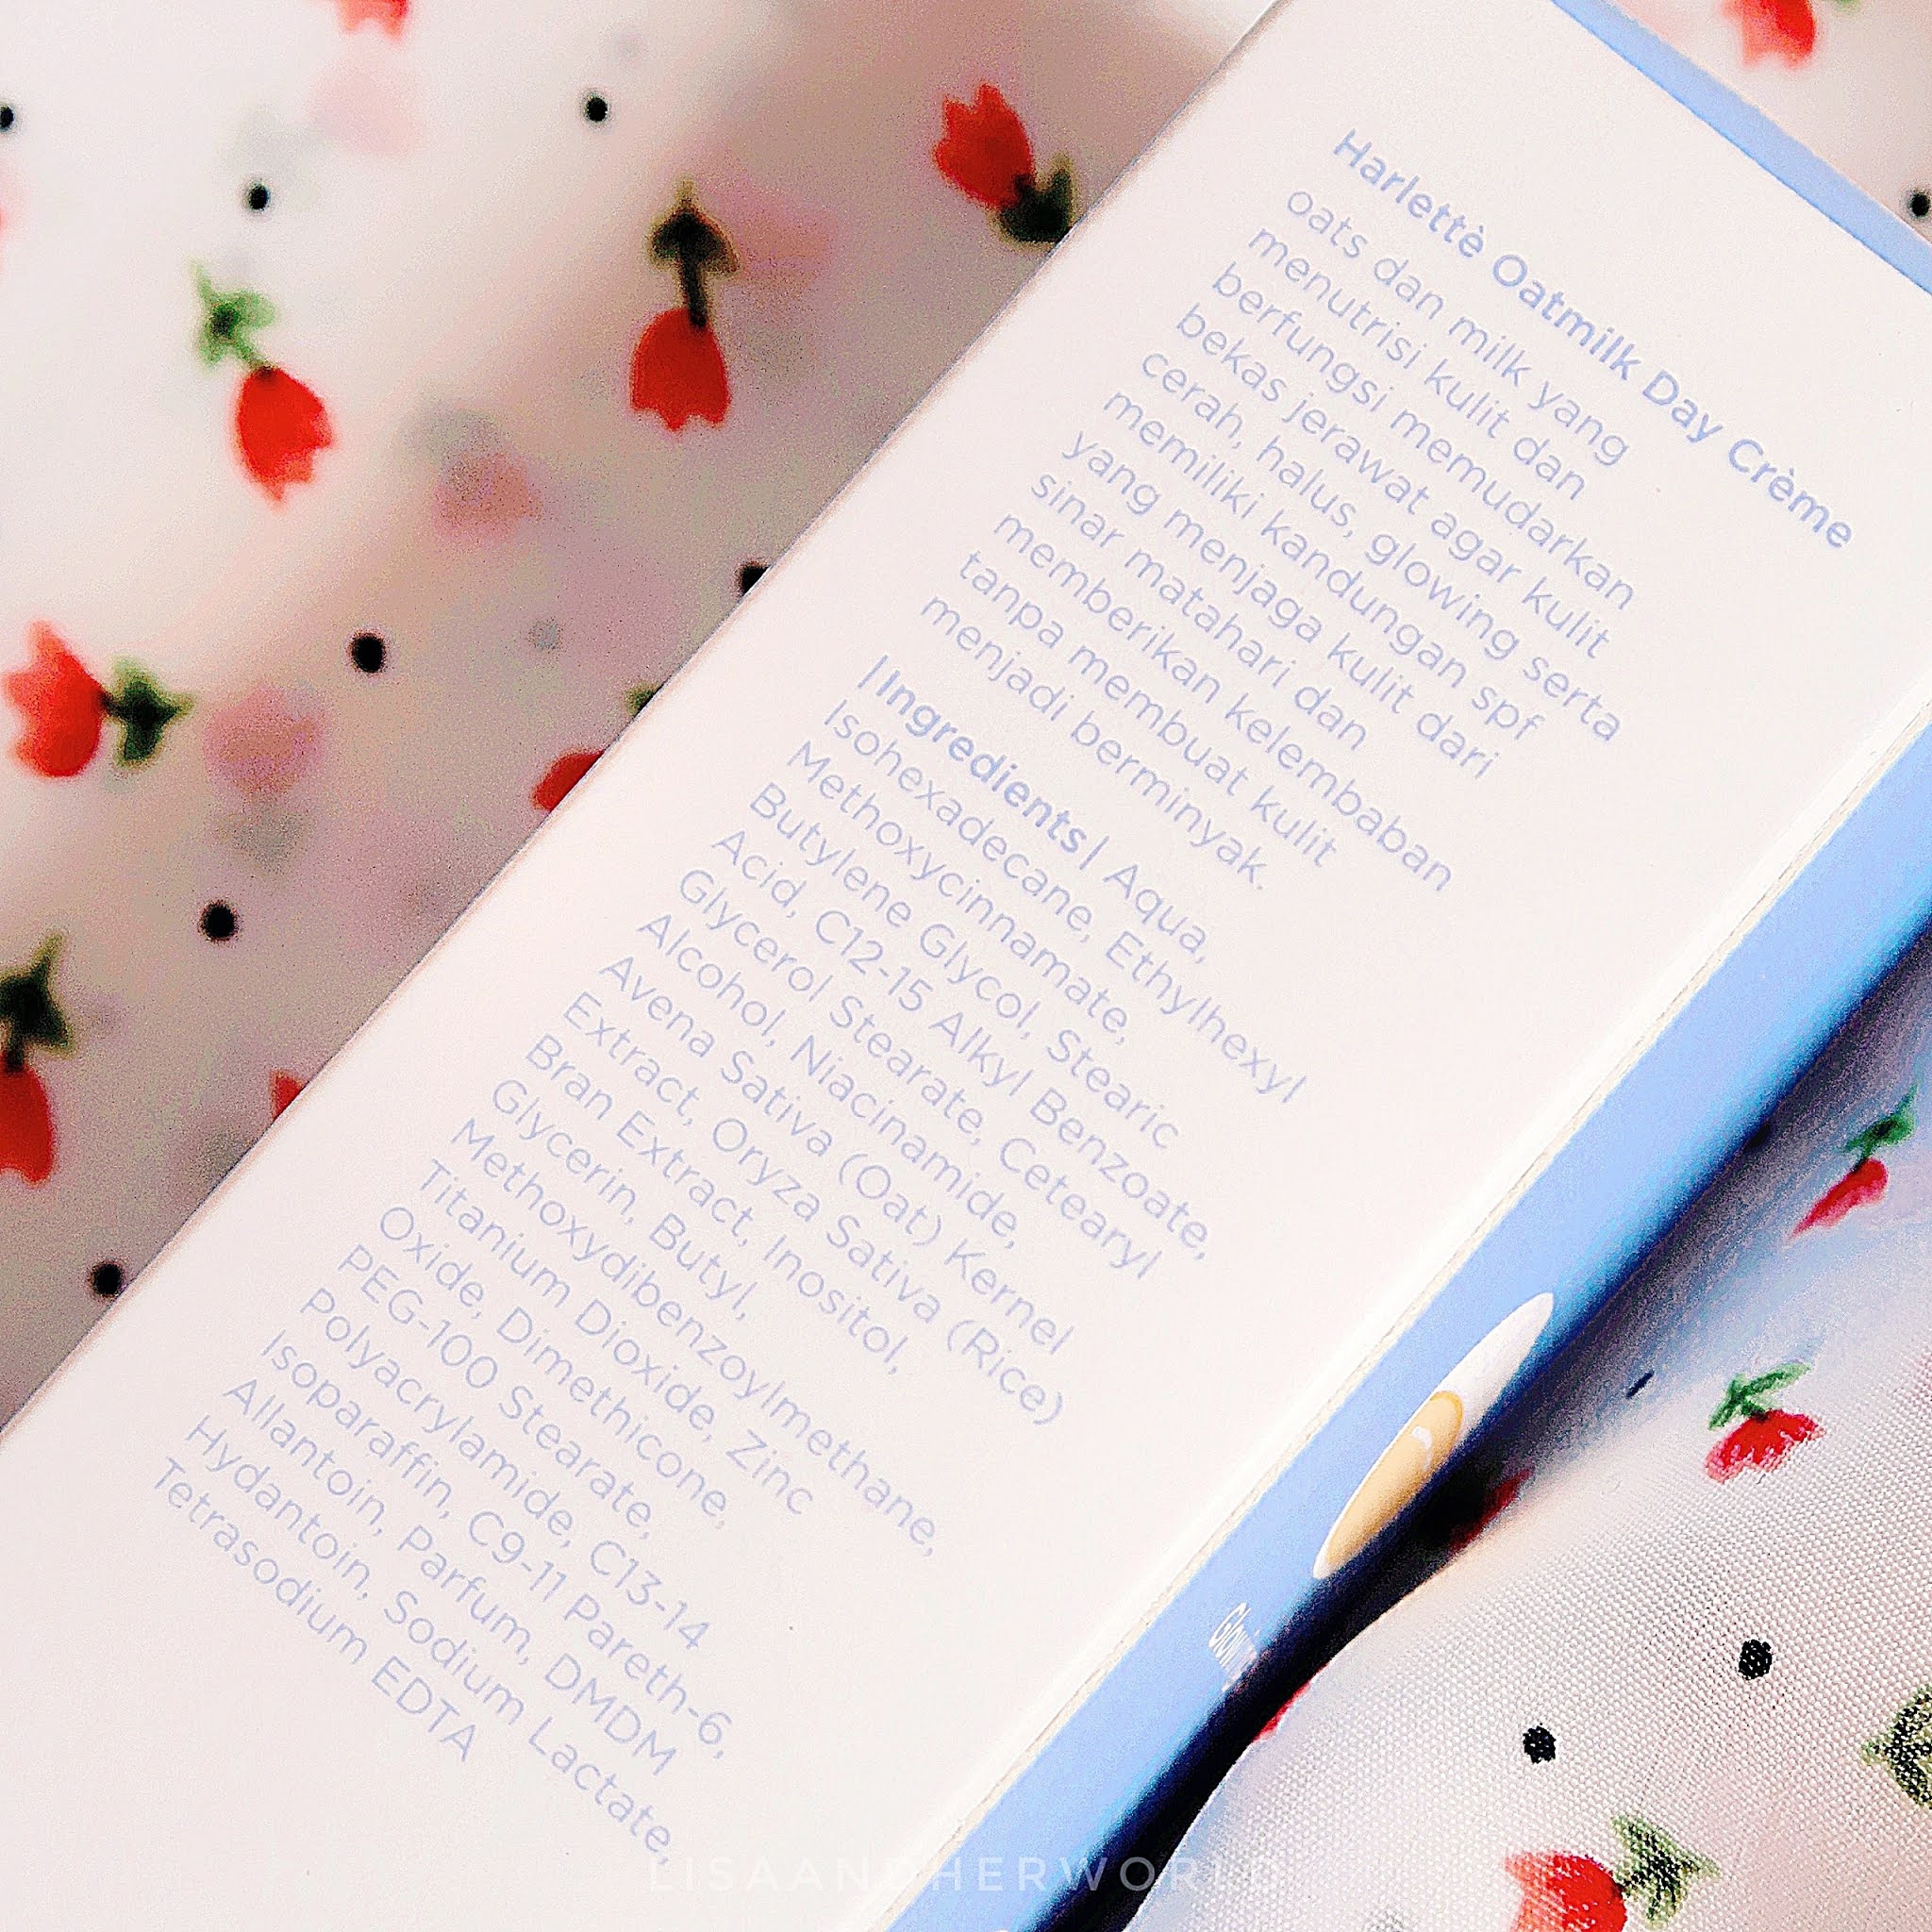 Harlettè Oatmilk Day Crème
oats dan milk yang
menutrisi kulit dan
berfungsi memudarkan
bekas jerawat agar kulit
cerah, halus, glowing serta
memiliki kandungan spf
yang menjaga kulit dari
sinar matahari dan
memberikan kelembaban
tanpa membuat kulit
menjadi berminyak.
|Ingredients| Aqua,
Isohexadecane, Ethylhexyl
Methoxycinnamate,
Butylene Glycol, Stearic
Acid, C12-15 Alkyl Benzoate,
Glycerol Stearate, Cetearyl
Alcohol, Niacinamide,
Avena Sativa (Oat) Kernel
Extract, Oryza Sativa (Rice)
Bran Extract, Inositol,
Glycerin, Butyl,
Methoxydibenzoylmethane,
Titanium Dioxide, Zinc
Oxide, Dimethicone,
PEG-100 Stearate,
Polyacrylamide, C13-14
Isoparaffin, C9-11 Pareth-6,
Allantoin, Parfum, DMDM
Hydantoin, Sodium Lactate,
Tetrasodium EDTA
LISAANDHERWORLD